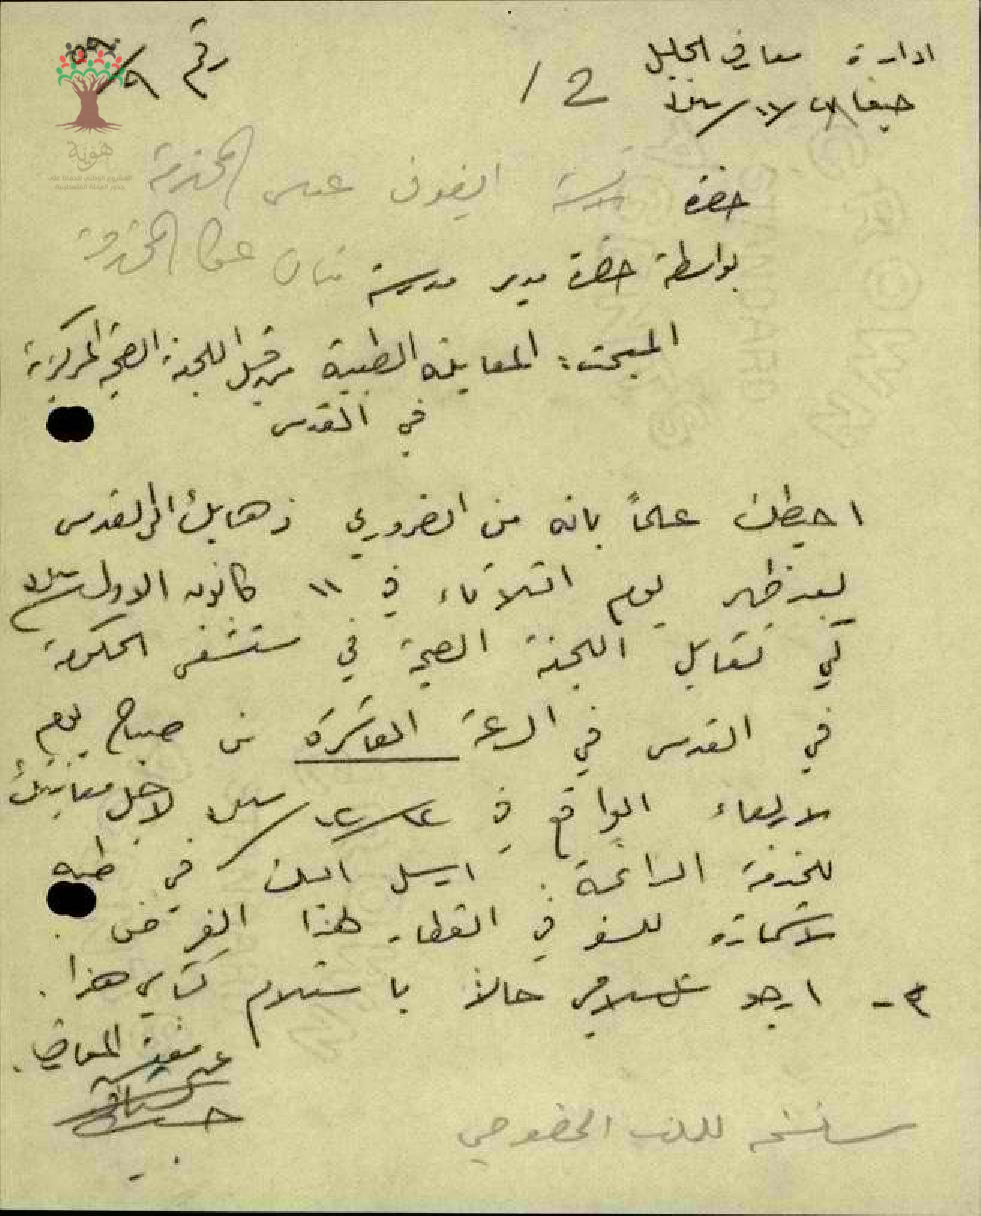 ادارة معارف الجليل
رقم ٥٩/٩
حيفا في
12
حضرة الانسة عبس المحترمة
بواسطة حضرة مدير مدرسة عكا المحترم
المبحث: المعاينة الطبية من قبل اللجنة الصحية المركزية
في القدس
احيطك علماً بانه من الضروري ذهابك الى القدس
بعد ظهر يوم الثلاثاء في ١١ كانون الاول
كي تقابل اللجنة الصحية في مستشفى الحكومة
في القدس في الساعة العاشرة من صباح يوم
الاربعاء الواقع في لاجل معاينتك
للخدمة الدائمة. ارسل اليك في طيه
استمارة للسفر في القطار لهذا الغرض.
٢- ارجو اعلامي حالاً باستلام كتابي هذا.
مفتش المعارف
نسخة للملف الخصوصي
هوية